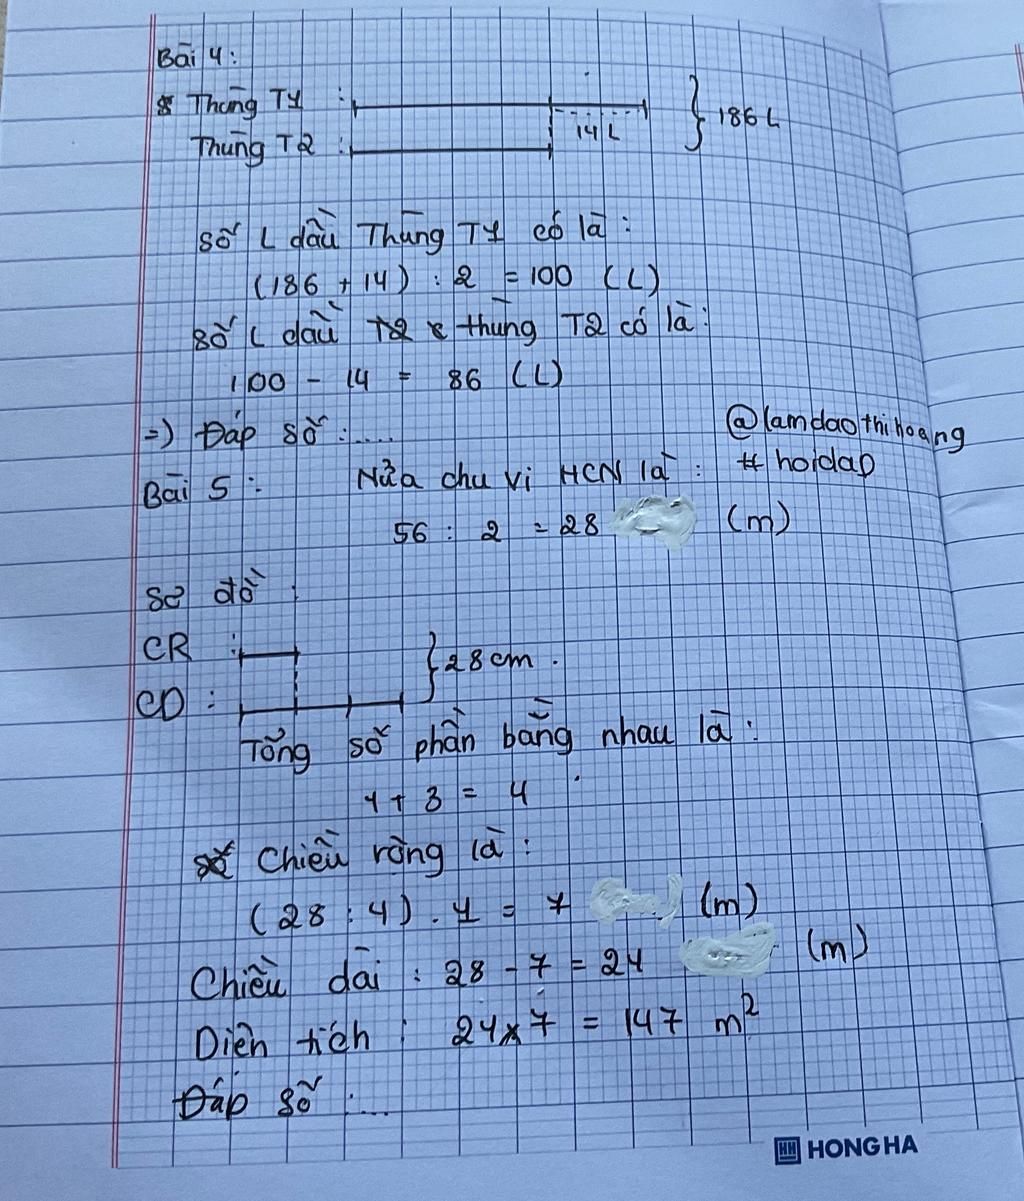 Bài 4:
Thùng T1 :
14 L
} 186 L
Thùng T2 :
Số L dầu Thùng T1 có là :
(186 + 14) : 2 = 100 (L)
Số L dầu thùng T2 có là :
100 - 14 = 86 (L)
=) Đáp số :....
@lamdaothihoang
# hoidap
Bài 5 : Nửa chu vi HCN là :
56 : 2 = 28 (m)
Sơ đồ :
CR :
} 28 cm .
CD :
Tổng số phần bằng nhau là :
1 + 3 = 4
Chiều rộng là :
(28 : 4) . 1 = 7 (m)
Chiều dài : 28 - 7 = 21 (m)
Diện tích : 21 x 7 = 147 m²
Đáp số :....
HH HONG HA